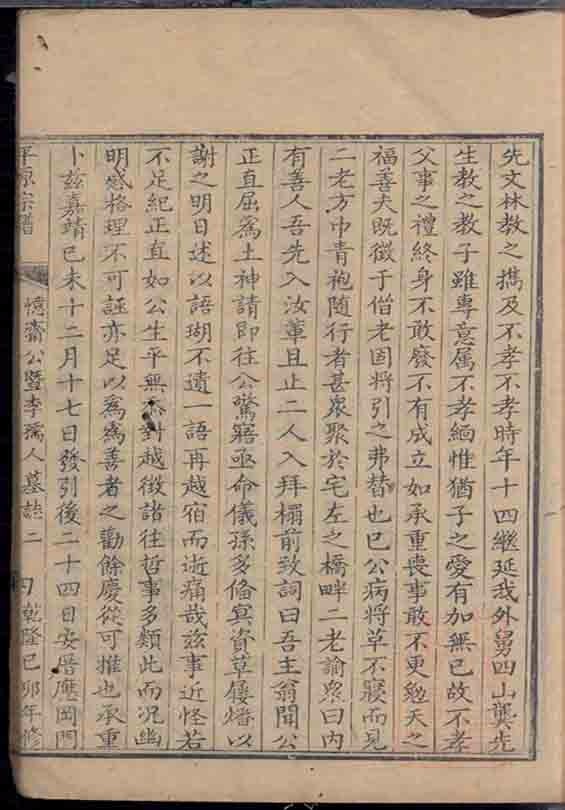 先文林教之擕及不孝不孝時年十四繼延我外舅四山龔先
生教之教子雖專意属不孝緬惟猶子之愛有加無已故不孝
父事之禮終身不敢廢不有成立如承重喪事敢不更勉天之
福善夫既徵于僧老固將引之弗替也已公病將草不寢而見
二老方巾青袍随行者甚衆聚於宅左之橋畔二老諭衆曰内
有善人吾先入汝輩且止二人入拜榻前致詞曰吾主翁聞公
正直屈為土神請即往公驚寤亟命儀孫多備冥資草屨燔以
謝之明日述以語瑚不遺一語再越宿而逝痛哉兹事近怪若
不足紀正直如公生平無忝對越徴諸往哲事多類此而况幽
明感格理不可誣亦足以為為善者之勸餘慶從可推也承重
卜兹嘉靖己未十二月十七日發引後二十四日安厝應岡門
平原宗譜
憶齋公暨李孺人墓誌二
乾隆己卯年修